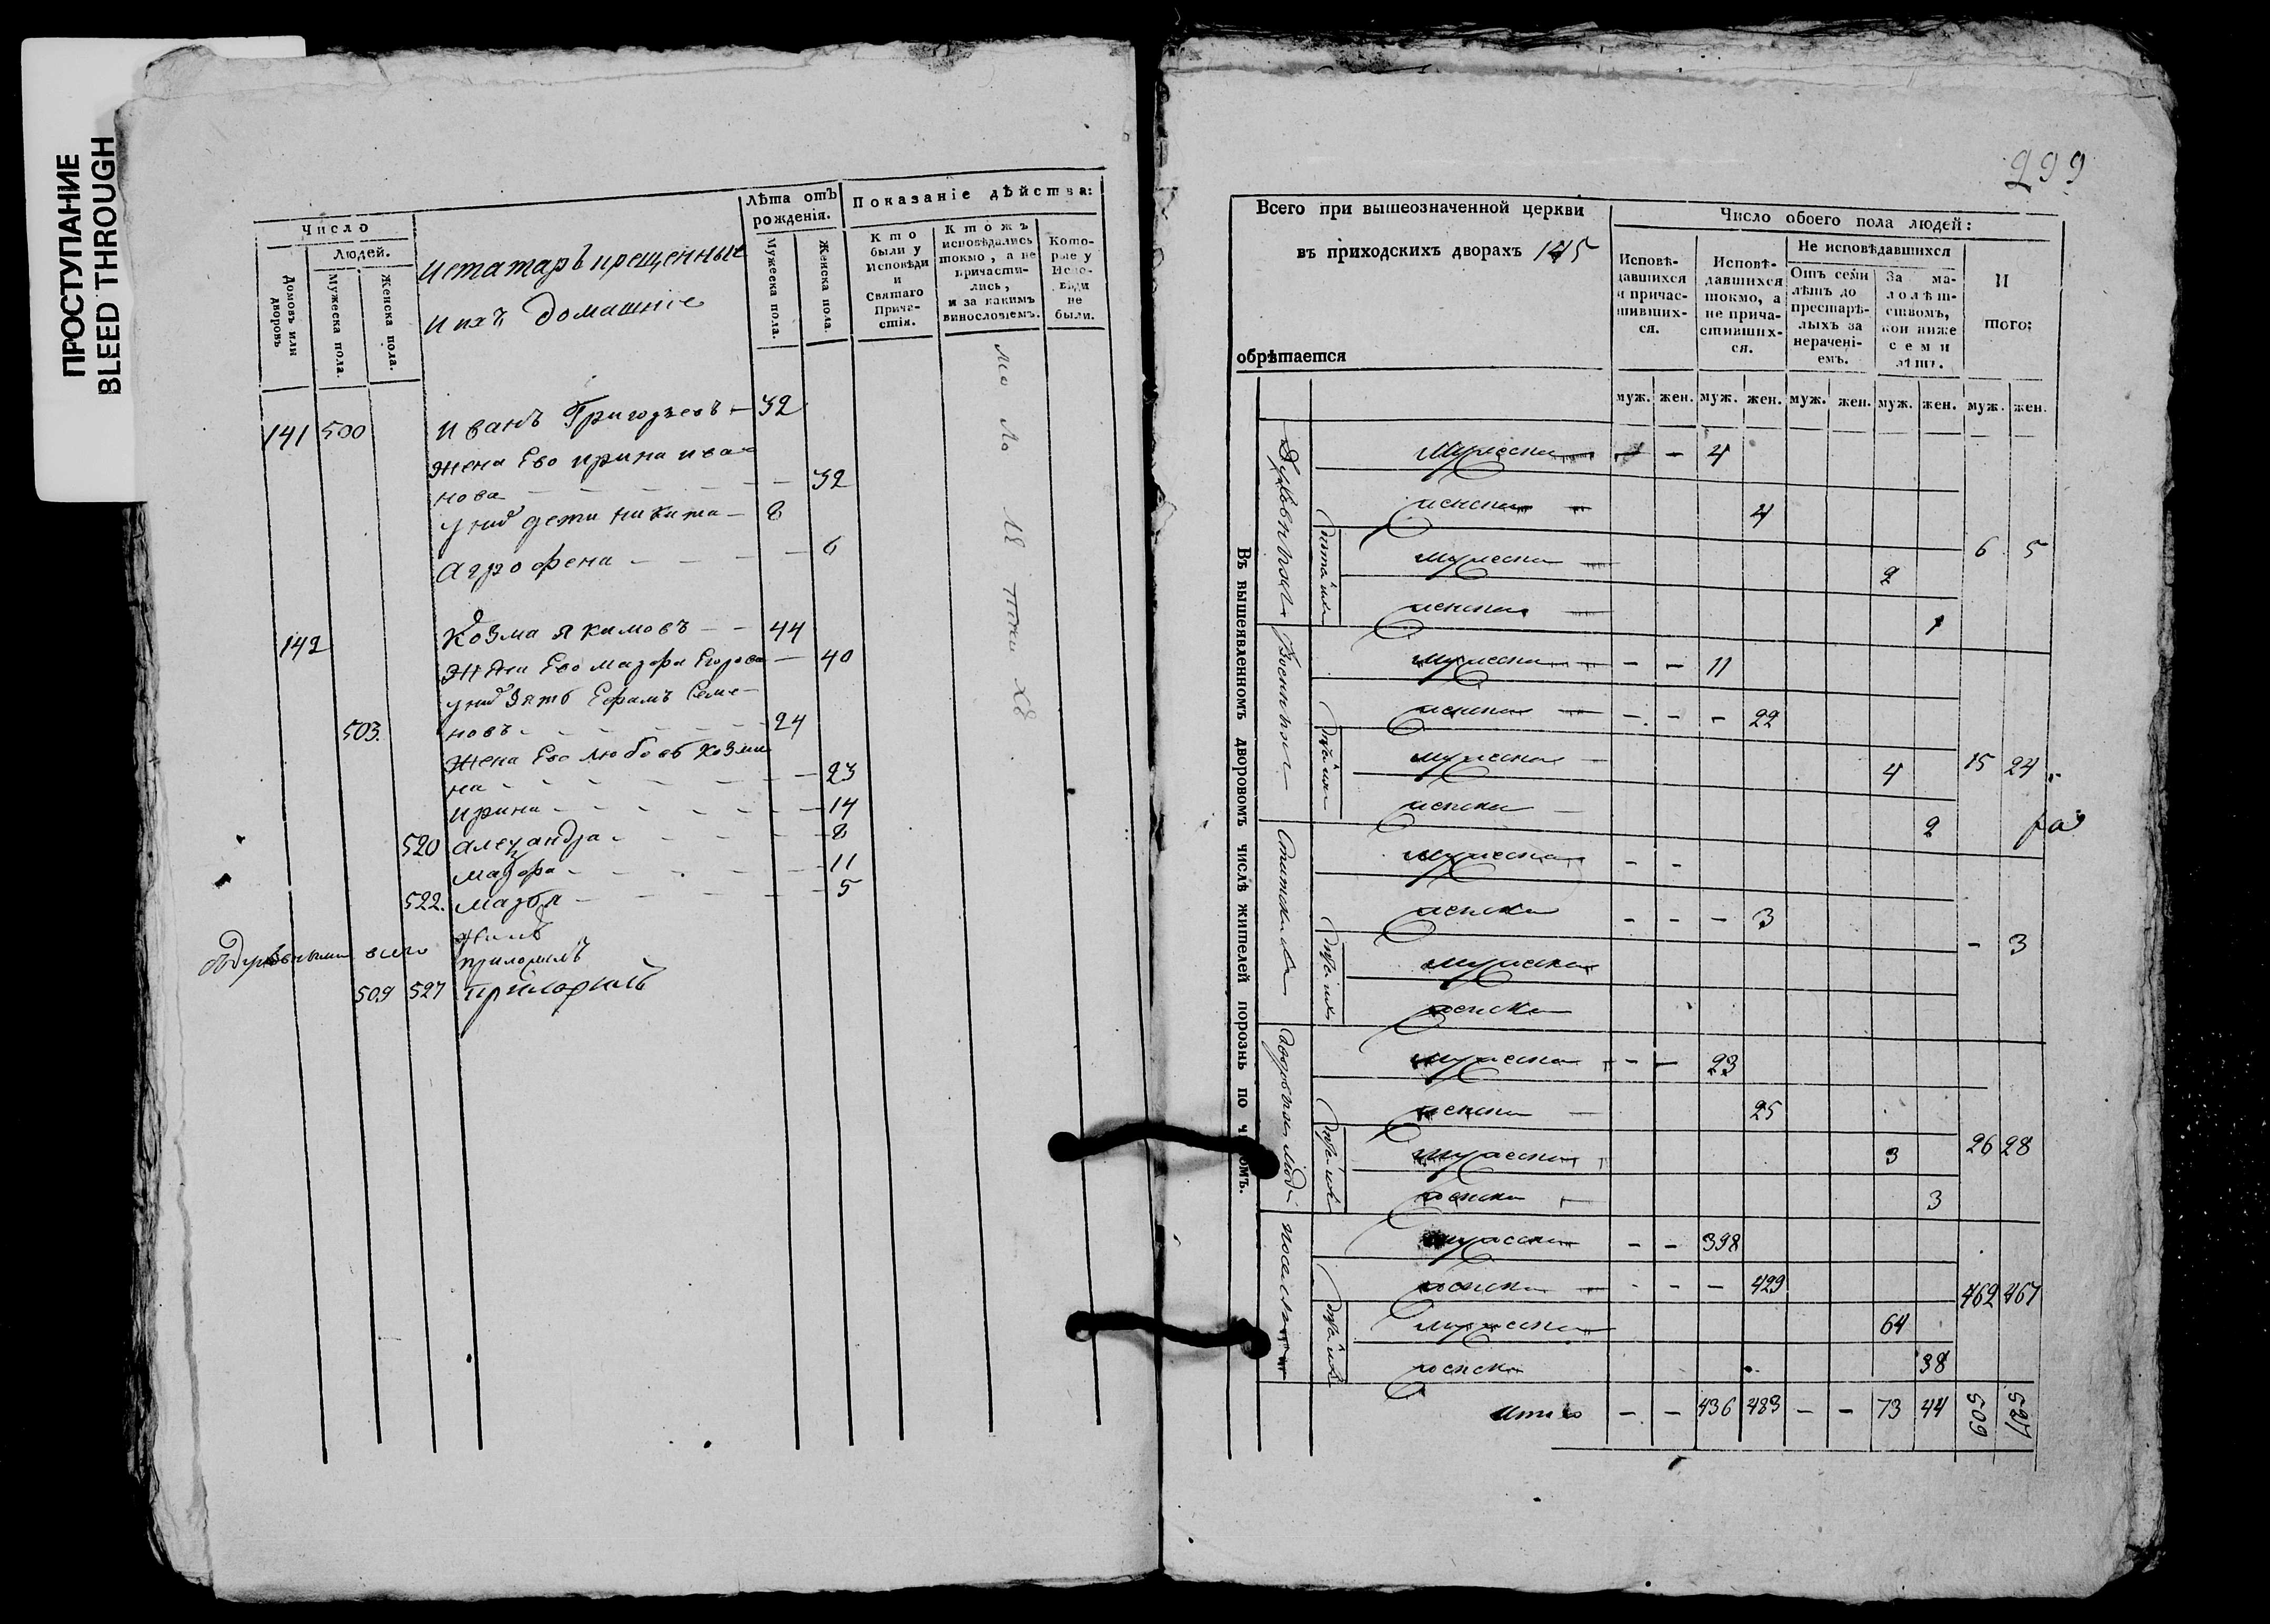 ПРОСТУПАНИЕ
BLEED THROUGH
Число
Людей.
Домовъ или дворовъ
Мужеска пола.
Женска пола.
Лѣта отъ рожденія.
Мужеска пола.
Женска пола.
Показаніе дѣйства:
Кто были у Исповѣди и Святаго Причастія.
Кто жъ исповѣдались токмо, а не причастились, и за какимъ винословіемъ.
Которые у Исповѣди не были.
и ихъ домашніе
141 500 Иванъ Григорьевъ — 32
Жена Ево ирина ива
нова — 32
дети Никита — 8
Агрофена — 6
142 Козма Якимовъ — 44
Жена Ево мавра Егорова — 40
зять Ефрамъ Семе-
503. новъ — 24
Жена Ево любовь Козми
на — 23
ирина — 14
520 александра — 8
мавра — 11
522. марья — 5
всего
509 527
299
Всего при вышеозначенной церкви
въ приходскихъ дворахъ 145
обрѣтается
Число обоего пола людей:
Исповѣдавшихся и причастившихся.
Исповѣдавшихся токмо, а не причастившихся.
Не исповѣдавшихся
Отъ семи лѣтъ до престарѣлыхъ за нерачені-емъ.
За малолѣтствомъ, кои ниже семи лѣтъ.
И того:
муж. жен. муж. жен. муж. жен. муж. жен. муж. жен.
Въ вышеявленномъ дворовомъ числѣ жителей порознь по чиномъ.
мужеска — — 4
женска 4
мужеска 2
женска 1
6 5
мужеска — — 11
женска — — — 22
мужеска 4
женска 2
15 24
мужеска — —
женска — — — 3
мужеска
женска
— 3
мужеска — — 23
женска 25
мужеска 3
женска 3
26 28
мужеска — — 398
женска — — — 429
мужеска 64
женска 38
462 467
Итого — — 436 483 — — 73 44 509 527